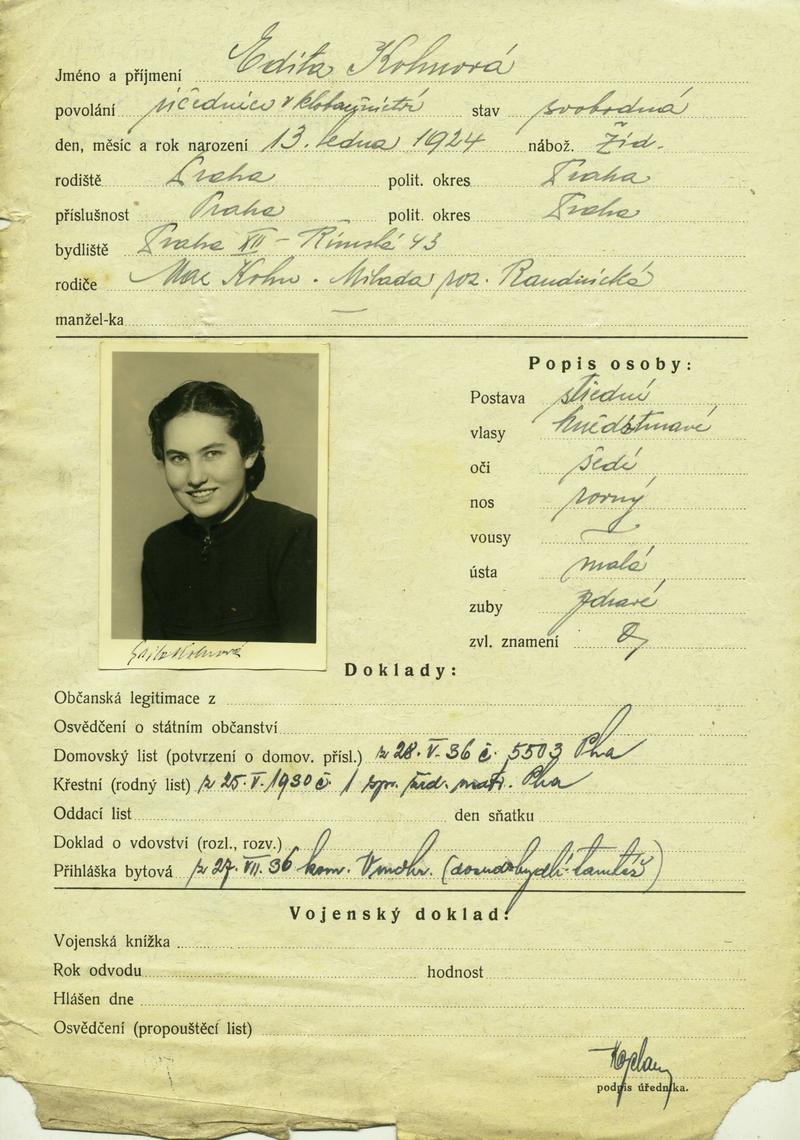 Jméno a příjmení Edita Kohnová
povolání účednice v klobaučnictví stav svobodná
den, měsíc a rok narození 13. ledna 1924 nábož. žid.
rodiště Praha polit. okres Praha
příslušnost Praha polit. okres Praha
bydliště Praha XII - Rímská 43
rodiče Max Kohn. Milada roz. Raudnická
manžel-ka —
Popis osoby:
Postava střední
vlasy hnědětmavé
oči šedé
nos rovný
vousy —
ústa malá
zuby zdravé
zvl. znamení
Edita Kohnová
Doklady:
Občanská legitimace z
Osvědčení o státním občanství
Domovský list (potvrzení o domov. přísl.) z 28. V. 36 č. 5503 Pha
Křestní (rodný list) z 25. V. 1930 č. 1 spr. žid. matr. Pha
Oddací list den sňatku
Doklad o vdovství (rozl., rozv.)
Přihláška bytová z 27. VII. 36 kom. Vinohr. (dosud bydlí tamtéž)
Vojenský doklad:
Vojenská knížka
Rok odvodu hodnost
Hlášen dne
Osvědčení (propouštěcí list)
podpis úředníka.